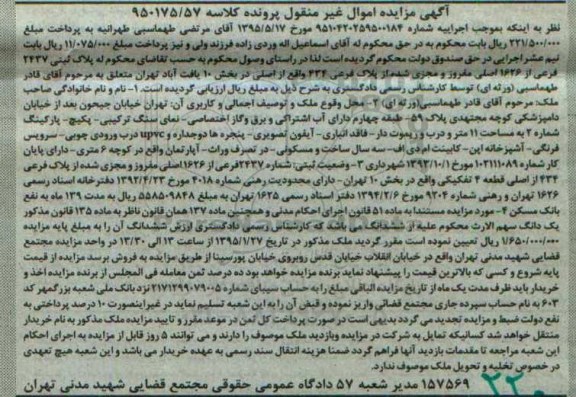 آگهی مزایده اموال غیر منقول پرونده کلاسه ۹۵۰۱۷۵/۵۷
نظر به اینکه بموجب اجراییه شماره ۹۵۱۰۴۲۰۲۵۹۵۰۰۱۸۴ مورخ ۱۳۹۵/۵/۱۷ آقای مرتضی طهماسبی طهرانیه به پرداخت مبلغ
۲۲۱/۵۰۰/۰۰۰ ریال بابت محکوم به در حق محکوم له آقای اسماعیل اله وردی زاده فرزند ولی و نیز پرداخت مبلغ ۱۱/۰۷۵/۰۰۰ ریال بابت
نیم عشر اجرایی در حق صندوق دولت محکوم گردیده است لذا در راستای وصول محکوم به حسب تقاضای محکوم له پلاک ثبتی ۲۴۳۷
فرعی از ۱۶۲۶ اصلی مفروز و مجزی شده از پلاک فرعی ۴۳۴ واقع از اصلی در بخش ۱۰ یافت آباد تهران متعلق به مرحوم آقای قادر
طهماسبی (ورثه ای) توسط کارشناس رسمی دادگستری به شرح ذیل به مبلغ ریال ارزیابی گردیده است. ۱- نام و نام خانوادگی صاحب
ملک: مرحوم آقای قادر طهماسبی (ورثه ای) ۲- محل وقوع ملک و توصیف اجمالی و کاربری آن: تهران خیابان جیحون بعد از خیابان
دامپزشکی کوچه مجتهدی پلاک ۵۹- طبقه چهارم دارای آب اشتراکی و برق و گاز اختصاصی- نمای سنگ ترکیبی- پکیچ- پارکینگ
شماره ۲ به مساحت ۱۱ متر و درب و ریموت دار- فاقد انباری- آیفون تصویری- پنجره ها دوجداره و upvc درب ورودی چوبی- سرویس
فرنگی- آشپزخانه اپن- کابینت ام دی اف- سه سال ساخت و مسکونی- در تصرف وراث- آپارتمان واقع در کوچه ۶ متری- دارای پایان
کار شماره ۱۰۲۱۱۱۰۸۹ مورخ ۱۳۹۳/۱۰/۱ شهرداری ۳- وضعیت ثبتی: شماره ۲۴۳۷ فرعی از ۱۶۲۶ اصلی مفروز و مجزی شده از پلاک فرعی
۴۳۴ از اصلی قطعه ۴ تفکیکی واقع در بخش ۱۰ تهران- دارای محدودیت رهنی شماره ۴۰۱۸ مورخ ۱۳۹۲/۴/۲۳ دفترخانه اسناد رسمی
۱۶۲۶ تهران و رهنی شماره ۹۲۰۴ مورخ ۱۳۹۴/۲/۶ دفتر اسناد رسمی ۱۶۲۵ تهران به مبلغ ۵۵۸۵۰۹۸۴۸ ریال به مدت ۱۳۹ ماه به نفع
بانک مسکن ۴- مورد مزایده مستندا به ماده ۵۱ قانون اجرای احکام مدنی و همچنین ماده ۱۳۷ همان قانون ناظر به ماده ۱۳۵ قانون مذکور
یک دانگ سهم الارث محکوم علیه از ششدانگ می باشد که کارشناس رسمی دادگستری ارزش ششدانگ آن را به مبلغ پایه مزایده
۱/۶۵۰/۰۰۰/۰۰۰ ریال تعیین نموده است مقرر گردید ملک مذکور در تاریخ ۱۳۹۵/۱/۲۷ از ساعت ۱۳ الی ۱۳/۳۰ در واحد مزایده مجتمع
قضایی شهید مدنی تهران واقع در خیابان انقلاب خیابان قدس روبروی خیابان پورسینا از طریق مزایده به فروش برسد مزایده از قیمت
پایه شروع و کسی که بالاترین قیمت را پیشنهاد نماید برنده مزایده خواهد بود ده درصد ثمن معامله فی المجلس از برنده مزایده اخذ و
خریدار باید ظرف مدت یک ماه از تاریخ مزایده الباقی مبلغ را به حساب سیبای شماره ۲۱۷۱۲۹۹۰۷۹۰۰۵ نزد بانک ملی شعبه بزرگمهر کد
۶۰۳ به نام حساب سپرده جاری مجتمع قضائی واریز نموده و قبض آن را به این شعبه تسلیم نماید در غیر اینصورت ۱۰ درصد پرداختی به
نفع دولت ضبط و مزایده تجدید می گردد بدیهی است در صورت پرداخت کل ثمن در موعد مقرر و تایید مزایده ملک مذکور به نام خریدار
منتقل خواهد شد کسانیکه تمایل به شرکت در مزایده و بازدید ملک موصوف را دارند و می توانند ۵ روز قابل از مزایده به اجرای احکام
این شعبه مراجعه تا مقدمات بازدید آنها فراهم گردد ضمنا هزینه انتقال سند رسمی به عهده خریدار می باشد و این شعبه هیچ تعهدی
در خصوص تخلیه و تحویل ملک موصوف ندارد.
۱۵۷۵۶۹ مدیر شعبه ۵۷ دادگاه عمومی حقوقی مجتمع قضایی شهید مدنی تهران